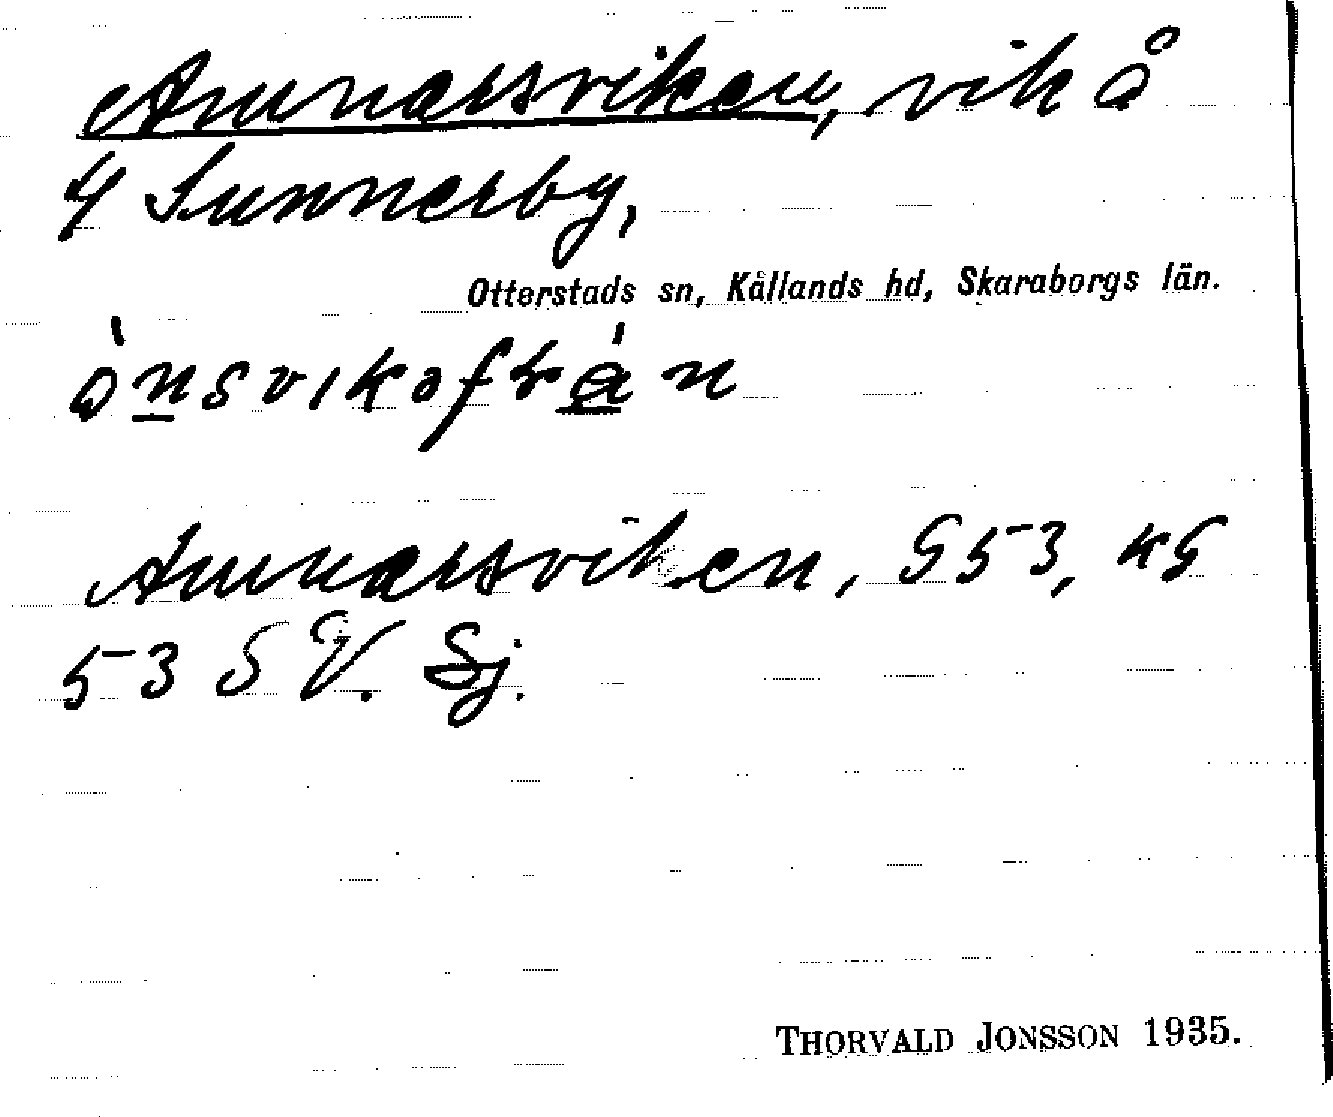 Annarsviken, vik å
4 Sunnerby,
Otterstads sn, Kållands hd, Skaraborgs län.
Annarsviken, G53, KG
53 SV. Sj.
THORVALD JONSSON 1935.